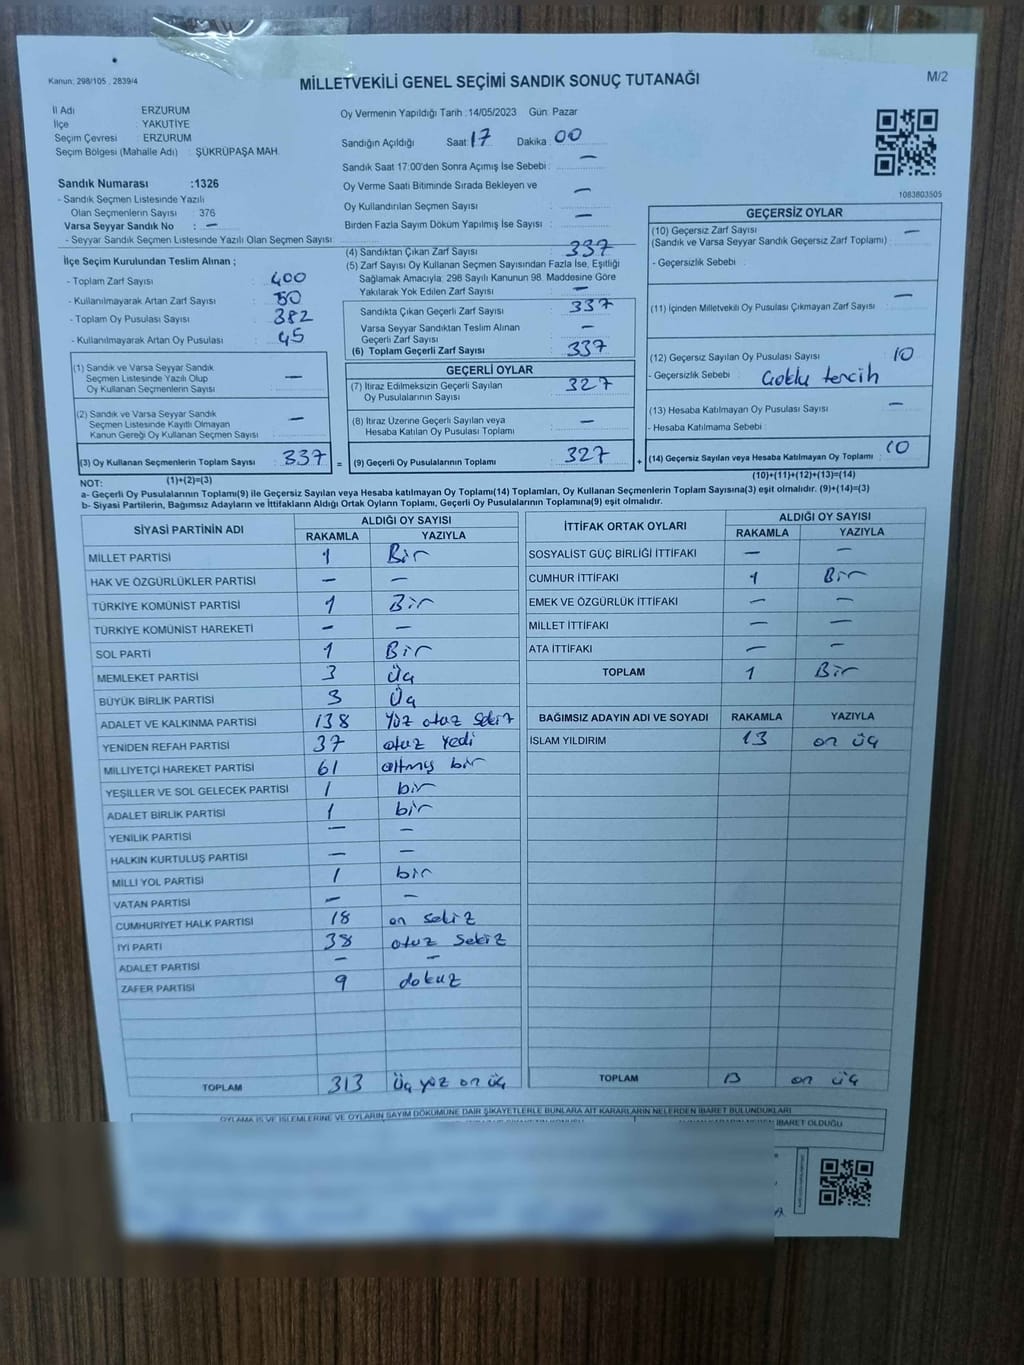 Kanun: 298/105 , 2839/4
MİLLETVEKİLİ GENEL SEÇİMİ SANDIK SONUÇ TUTANAĞI
M/2
İl Adı ERZURUM
İlçe YAKUTİYE
Seçim Çevresi : ERZURUM
Seçim Bölgesi (Mahalle Adı) : ŞÜKRÜPAŞA MAH.
Oy Vermenin Yapıldığı Tarih :14/05/2023 Gün: Pazar
Sandığın Açıldığı Saat: 17 Dakika: 00
Sandık Saat 17:00'den Sonra Açımış İse Sebebi : —
Oy Verme Saati Bitiminde Sırada Bekleyen ve
Oy Kullandırılan Seçmen Sayısı : —
Birden Fazla Sayım Döküm Yapılmış İse Sayısı : —
1083803505
Sandık Numarası :1326
- Sandık Seçmen Listesinde Yazılı
Olan Seçmenlerin Sayısı : 376
Varsa Seyyar Sandık No : —
- Seyyar Sandık Seçmen Listesinde Yazılı Olan Seçmen Sayısı :
İlçe Seçim Kurulundan Teslim Alınan ;
- Toplam Zarf Sayısı : 400
- Kullanılmayarak Artan Zarf Sayısı : 50
- Toplam Oy Pusulası Sayısı : 382
- Kullanılmayarak Artan Oy Pusulası : 45
(1) Sandık ve Varsa Seyyar Sandık
Seçmen Listesinde Yazılı Olup
Oy Kullanan Seçmenlerin Sayısı : —
(2) Sandık ve Varsa Seyyar Sandık
Seçmen Listesinde Kayıtlı Olmayan
Kanun Gereği Oy Kullanan Seçmen Sayısı : —
(3) Oy Kullanan Seçmenlerin Toplam Sayısı : 337
(1)+(2)=(3)
(4) Sandıktan Çıkan Zarf Sayısı : 337
(5) Zarf Sayısı Oy Kullanan Seçmen Sayısından Fazla İse, Eşitliği
Sağlamak Amacıyla; 298 Sayılı Kanunun 98. Maddesine Göre
Yakılarak Yok Edilen Zarf Sayısı : —
Sandıkta Çıkan Geçerli Zarf Sayısı : 337
Varsa Seyyar Sandıktan Teslim Alınan
Geçerli Zarf Sayısı : —
(6) Toplam Geçerli Zarf Sayısı : 337
GEÇERLİ OYLAR
(7) İtiraz Edilmeksizin Geçerli Sayılan
Oy Pusulalarının Sayısı : 327
(8) İtiraz Üzerine Geçerli Sayılan veya
Hesaba Katılan Oy Pusulası Toplamı : —
= (9) Geçerli Oy Pusulalarının Toplamı : 327
GEÇERSİZ OYLAR
(10) Geçersiz Zarf Sayısı : —
(Sandık ve Varsa Seyyar Sandık Geçersiz Zarf Toplamı) :
- Geçersizlik Sebebi :
(11) İçinden Milletvekili Oy Pusulası Çıkmayan Zarf Sayısı : —
(12) Geçersiz Sayılan Oy Pusulası Sayısı : 10
- Geçersizlik Sebebi : Çoklu tercih
(13) Hesaba Katılmayan Oy Pusulası Sayısı : —
- Hesaba Katılmama Sebebi :
+ (14) Geçersiz Sayılan veya Hesaba Katılmayan Oy Toplamı : 10
(10)+(11)+(12)+(13)=(14)
NOT:
a- Geçerli Oy Pusulalarının Toplamı(9) ile Geçersiz Sayılan veya Hesaba katılmayan Oy Toplamı(14) Toplamları, Oy Kullanan Seçmenlerin Toplam Sayısına(3) eşit olmalıdır. (9)+(14)=(3)
b- Siyasi Partilerin, Bağımsız Adayların ve İttifakların Aldığı Ortak Oyların Toplamı, Geçerli Oy Pusulalarının Toplamına(9) eşit olmalıdır.
SİYASİ PARTİNİN ADI ALDIĞI OY SAYISI
RAKAMLA YAZIYLA
MİLLET PARTİSİ 1 Bir
HAK VE ÖZGÜRLÜKLER PARTİSİ — —
TÜRKİYE KOMÜNİST PARTİSİ 1 Bir
TÜRKİYE KOMÜNİST HAREKETİ — —
SOL PARTİ 1 Bir
MEMLEKET PARTİSİ 3 Üç
BÜYÜK BİRLİK PARTİSİ 3 Üç
ADALET VE KALKINMA PARTİSİ 138 Yüz otuz sekiz
YENİDEN REFAH PARTİSİ 37 otuz yedi
MİLLİYETÇİ HAREKET PARTİSİ 61 altmış bir
YEŞİLLER VE SOL GELECEK PARTİSİ 1 bir
ADALET BİRLİK PARTİSİ 1 bir
YENİLİK PARTİSİ — —
HALKIN KURTULUŞ PARTİSİ — —
MİLLİ YOL PARTİSİ 1 bir
VATAN PARTİSİ — —
CUMHURİYET HALK PARTİSİ 18 on sekiz
İYİ PARTİ 38 otuz sekiz
ADALET PARTİSİ — —
ZAFER PARTİSİ 9 dokuz
TOPLAM 313 Üç yüz on üç
İTTİFAK ORTAK OYLARI ALDIĞI OY SAYISI
RAKAMLA YAZIYLA
SOSYALİST GÜÇ BİRLİĞİ İTTİFAKI — —
CUMHUR İTTİFAKI 1 Bir
EMEK VE ÖZGÜRLÜK İTTİFAKI — —
MİLLET İTTİFAKI — —
ATA İTTİFAKI — —
TOPLAM 1 Bir
BAĞIMSIZ ADAYIN ADI VE SOYADI RAKAMLA YAZIYLA
İSLAM YILDIRIM 13 on üç
TOPLAM 13 on üç
OYLAMA İŞ VE İŞLEMLERİNE VE OYLARIN SAYIM DÖKÜMÜNE DAİR ŞİKAYETLERLE BUNLARA AİT KARARLARIN NELERDEN İBARET BULUNDUKLARI
İBARET OLDUĞU